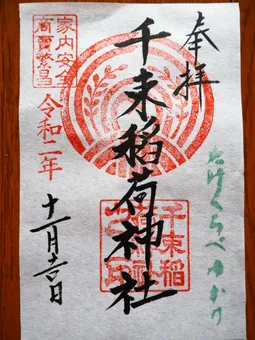 奉拝
たけくらべゆかり
千束稲荷神社
千束稲
家内安全
商売繁昌
令和二年
十一月吉日